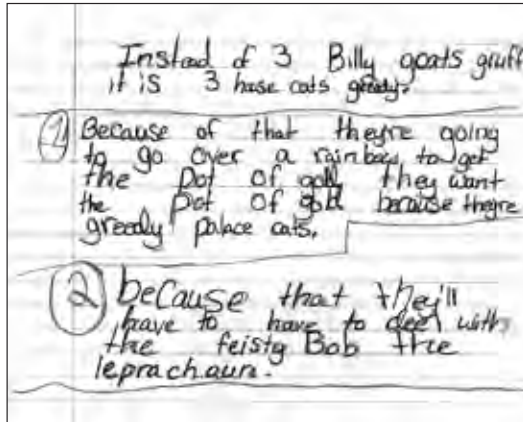 Instead of 3 Billy goats gruff
it is 3 hase cats greedy.
1 Because of that theyre going
to go over a rainbow to get
the pot of gold they want
the pot of gold because theyre
greedy palace cats.
2 because that they'll
have to have to deel with
the feisty Bob the
leprachaun.